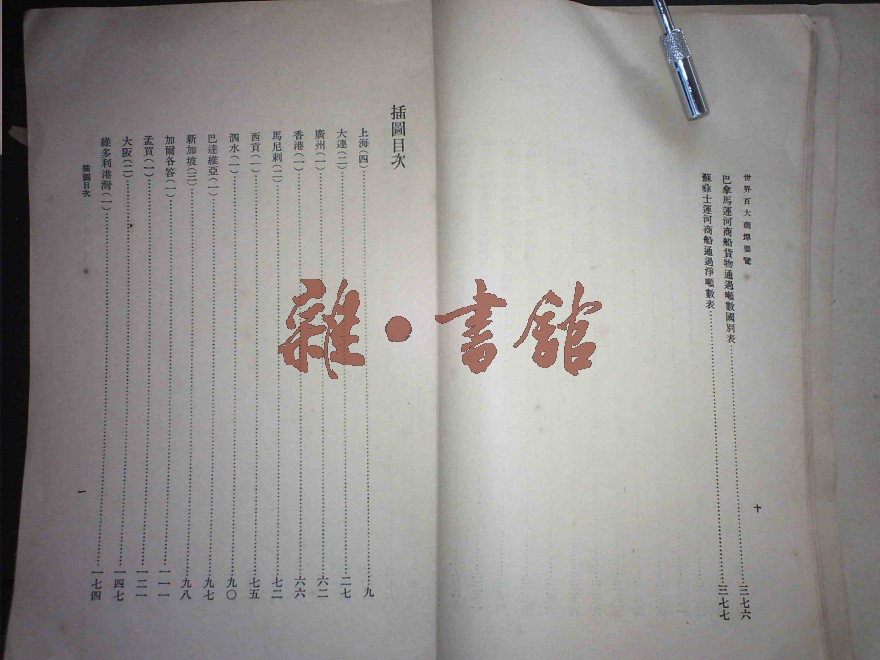 世界百大商埠要覽
巴拿馬運河商船貨物通過噸數國別表……三七六
蘇彝士運河商船通過淨噸數表……三七七
十
插圖目次
上海(四)……九
大連(二)……二七
廣州(一)……六二
香港(一)……六六
馬尼剌(二)……七二
西貢(一)……七五
泗水(一)……九〇
巴達維亞(一)……九七
新加坡(三)……九八
加爾各答(一)……一一一
孟買(一)……一二一
大阪(二)……一四七
維多利港灣(一)……一七四
插圖目次
一
雜·書館